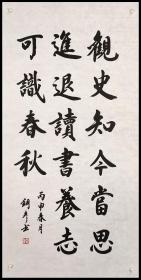 觀史知今當思
進退讀書養志
可識春秋
丙申春月